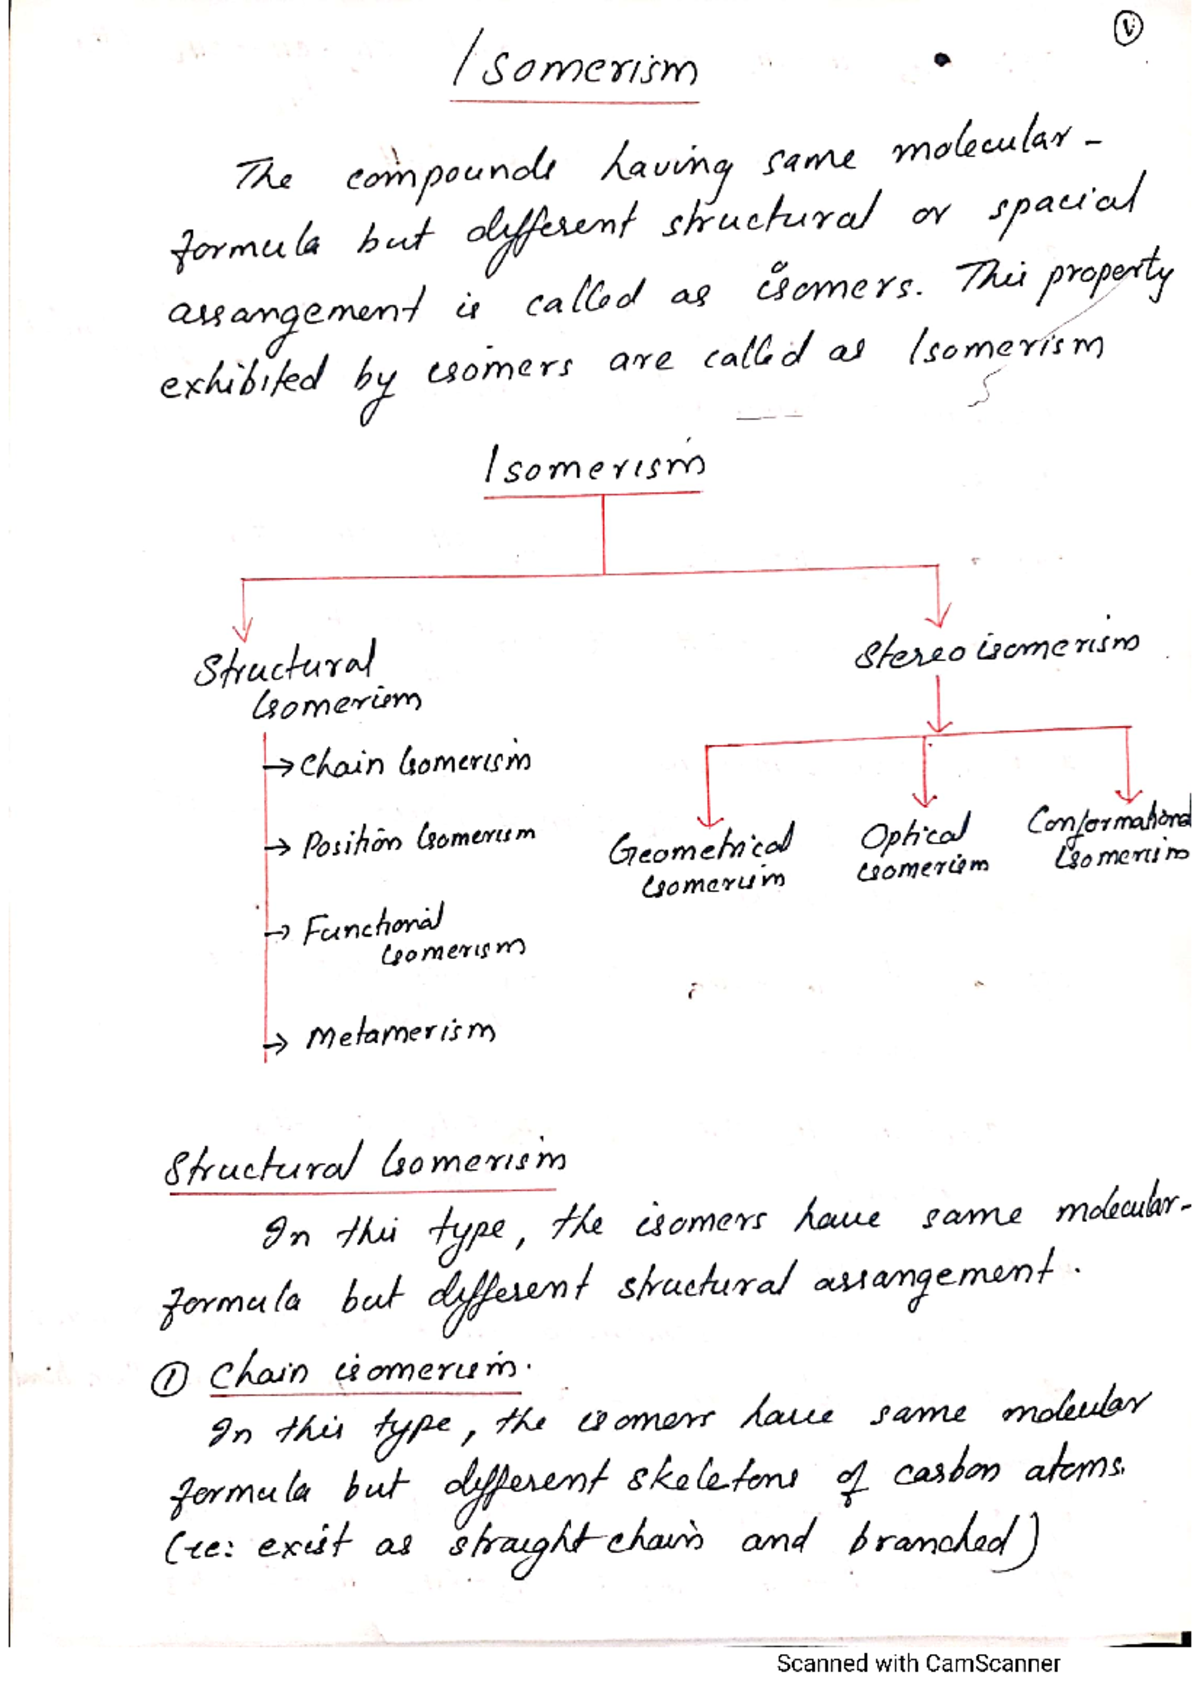 ①
Isomerism
The compounds having same molecular-
formula but different structural or spacial
arrangement is called as isomers. This property
exhibited by isomers are called as Isomerism
Isomerism
Structural
Isomerism
Stereo isomerism
→ Chain Isomerism
→ Position Isomerism
→ Functional
Isomerism
→ Metamerism
Geometrical
Isomerism
Optical
isomerism
Conformational
Isomerism
Structural Isomerism
In this type, the isomers have same molecular-
formula but different structural arrangement.
① Chain isomerism.
In this type, the isomers have same molecular
formula but different skeletons of carbon atoms.
(ie: exist as straight chain and branched)
Scanned with CamScanner